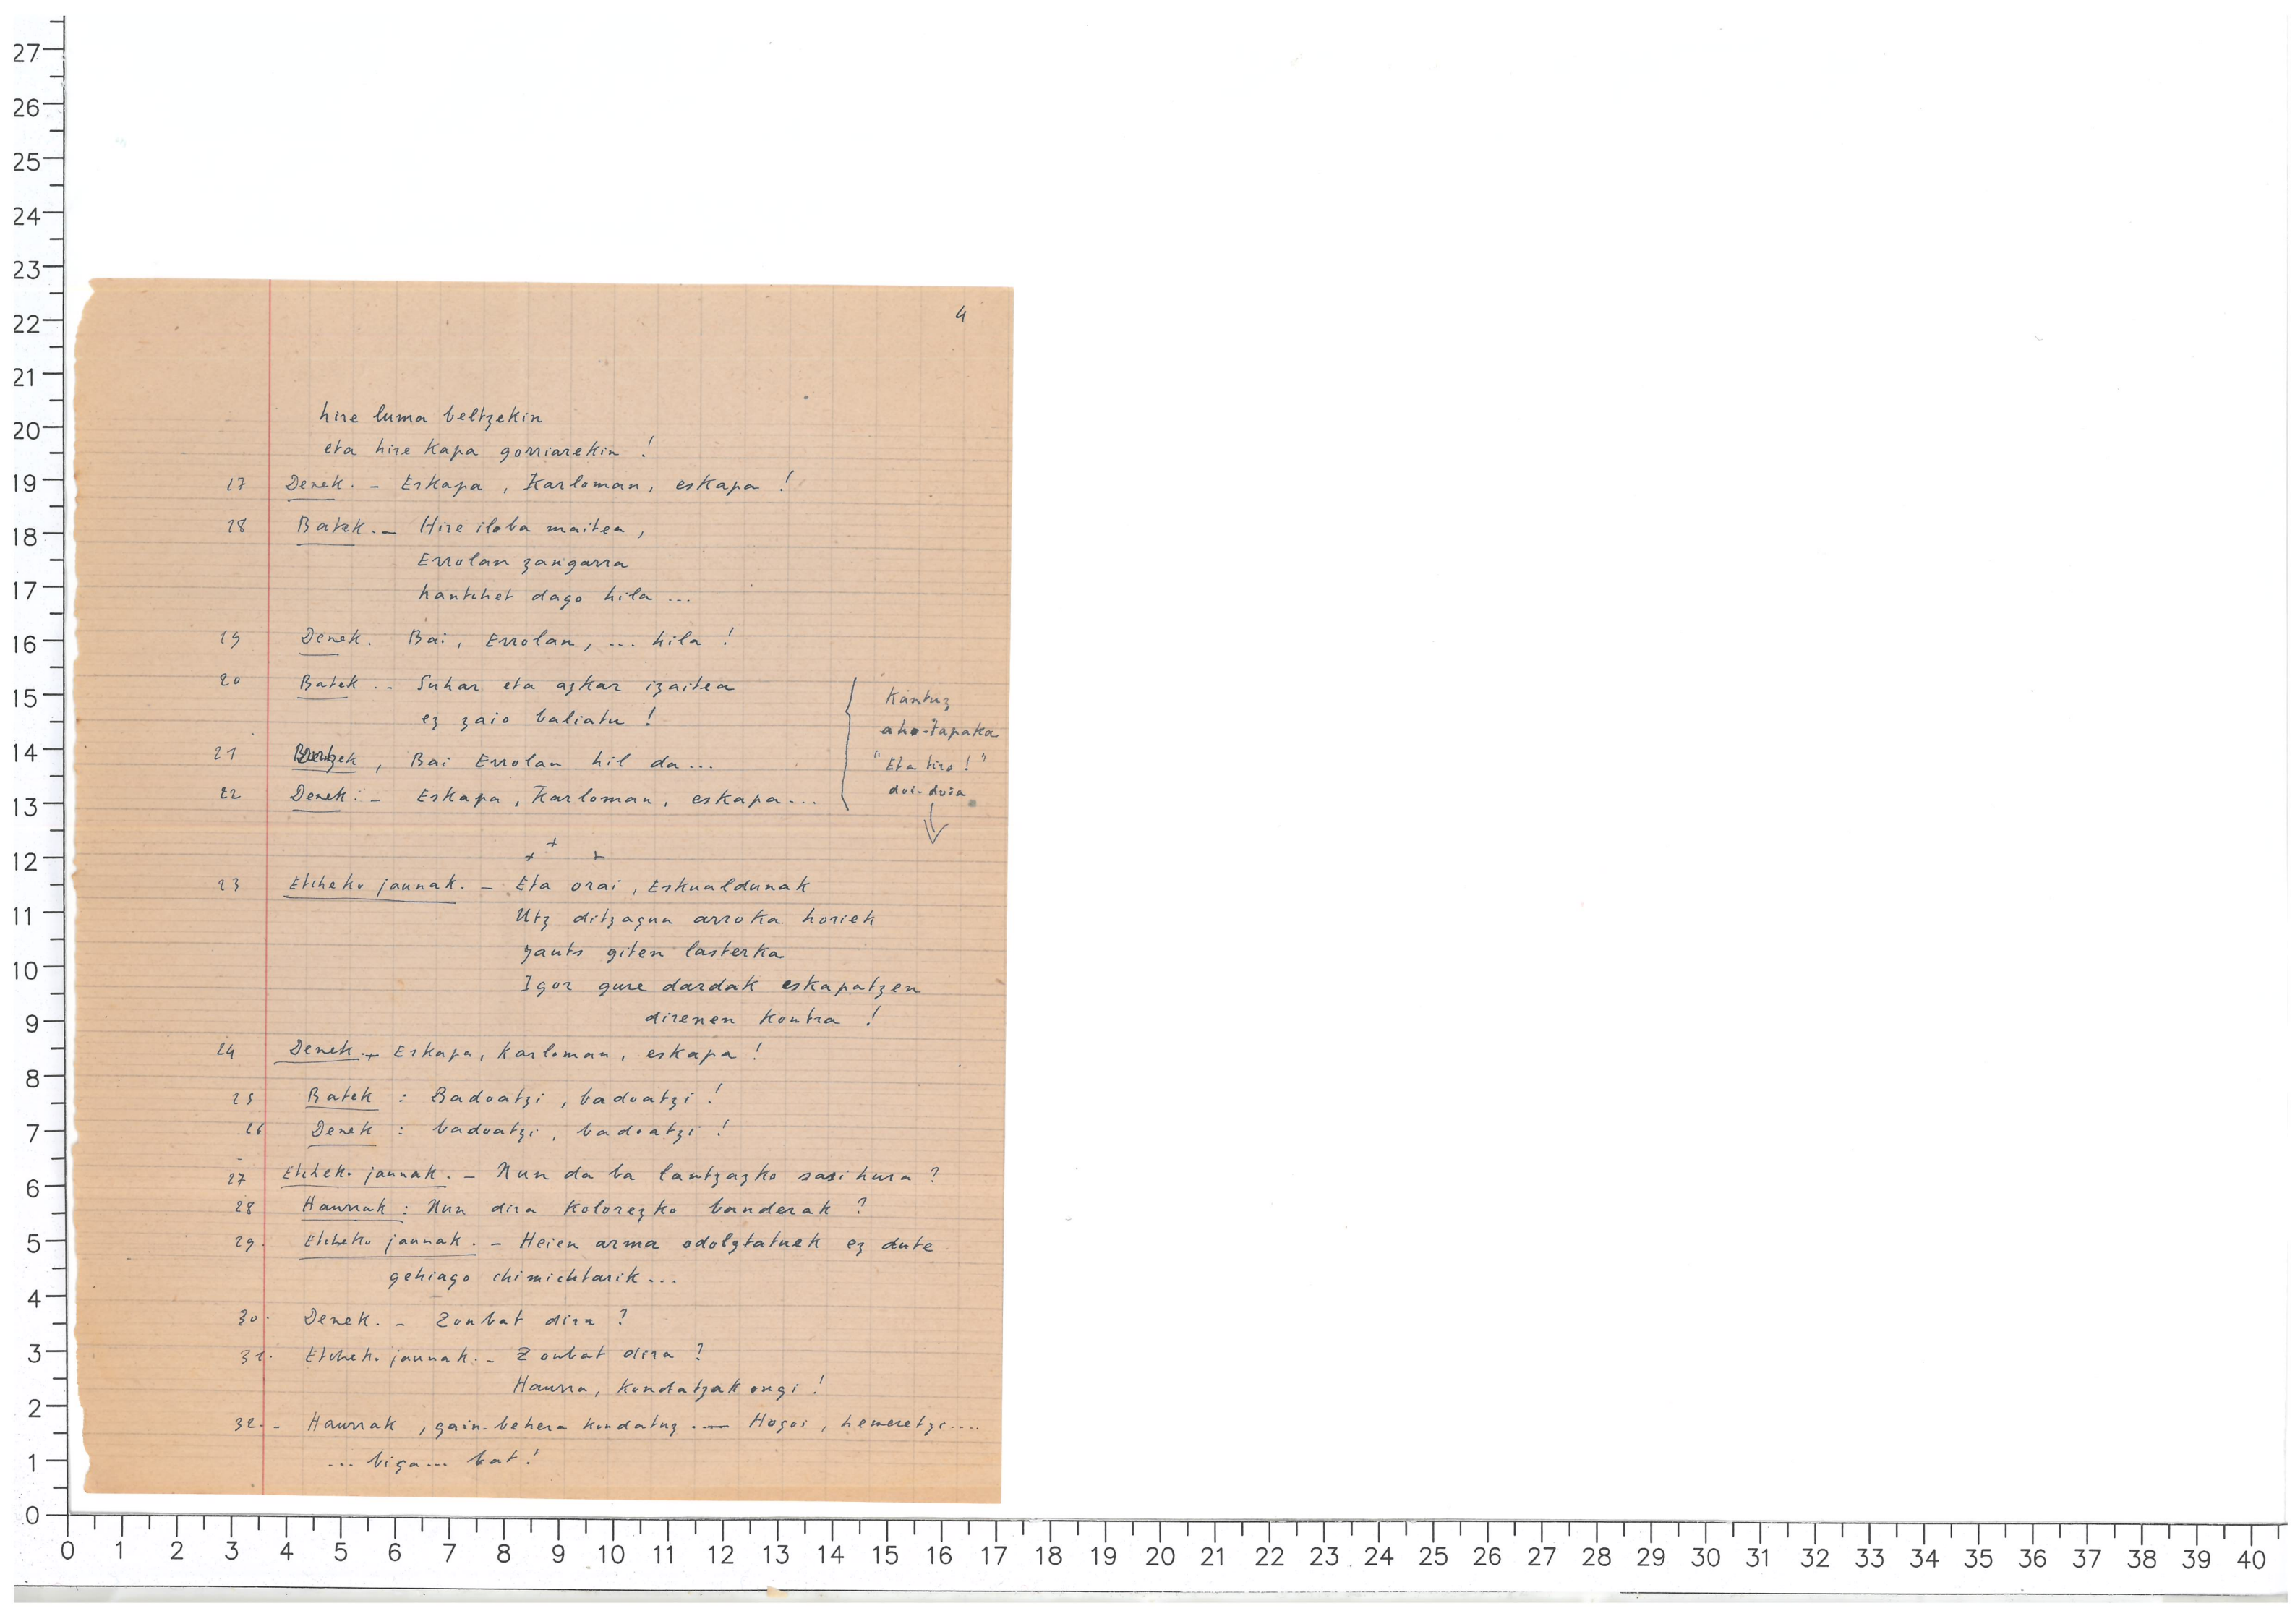 4
hire luma beltzekin
eta hire kapa gorriarekin !
17 Denek. - Eskapa, Karloman, eskapa !
18 Batek. - Hire iloba maitea,
Errolan zangarra
hantchet dago hila ...
19 Denek. Bai, Errolan, ... hila !
20 Batek. - Suhar eta azkar izaitea
ez zaio baliatu !
21 Bertzek, Bai Errolan hil da...
22 Denek: - Eskapa, Karloman, eskapa...
Kantuz
aho-tapaka
"Eta tiro !"
doi-doia
+
x x
23 Etcheko jaunak. - Eta orai, Eskualdunak
Utz ditzagun arroka horiek
Jauts giten lasterka
Igor gure dardak eskapatzen
direnen kontra !
24 Denek. - Eskapa, Karloman, eskapa !
25 Batek : Badoatzi, badoatzi !
26 Denek : badoatzi, badoatzi !
27 Etcheko jaunak. - Nun da ba lantzazko sasi hura ?
28 Haurrak : Nun dira kolorezko banderak ?
29. Etcheko jaunak. - Heien arma odolztatuek ez dute
gehiago chimichtarik...
30. Denek. - Zonbat dira ?
31. Etcheko jaunak. - Zonbat dira ?
Haurra, kondatzak ongi !
32. - Haurrak, gain-behera kondatuz. — Hogoi, hemeretzi....
... biga... bat !
27
26
25
24
23
22
21
20
19
18
17
16
15
14
13
12
11
10
9
8
7
6
5
4
3
2
1
0
0 1 2 3 4 5 6 7 8 9 10 11 12 13 14 15 16 17 18 19 20 21 22 23 24 25 26 27 28 29 30 31 32 33 34 35 36 37 38 39 40